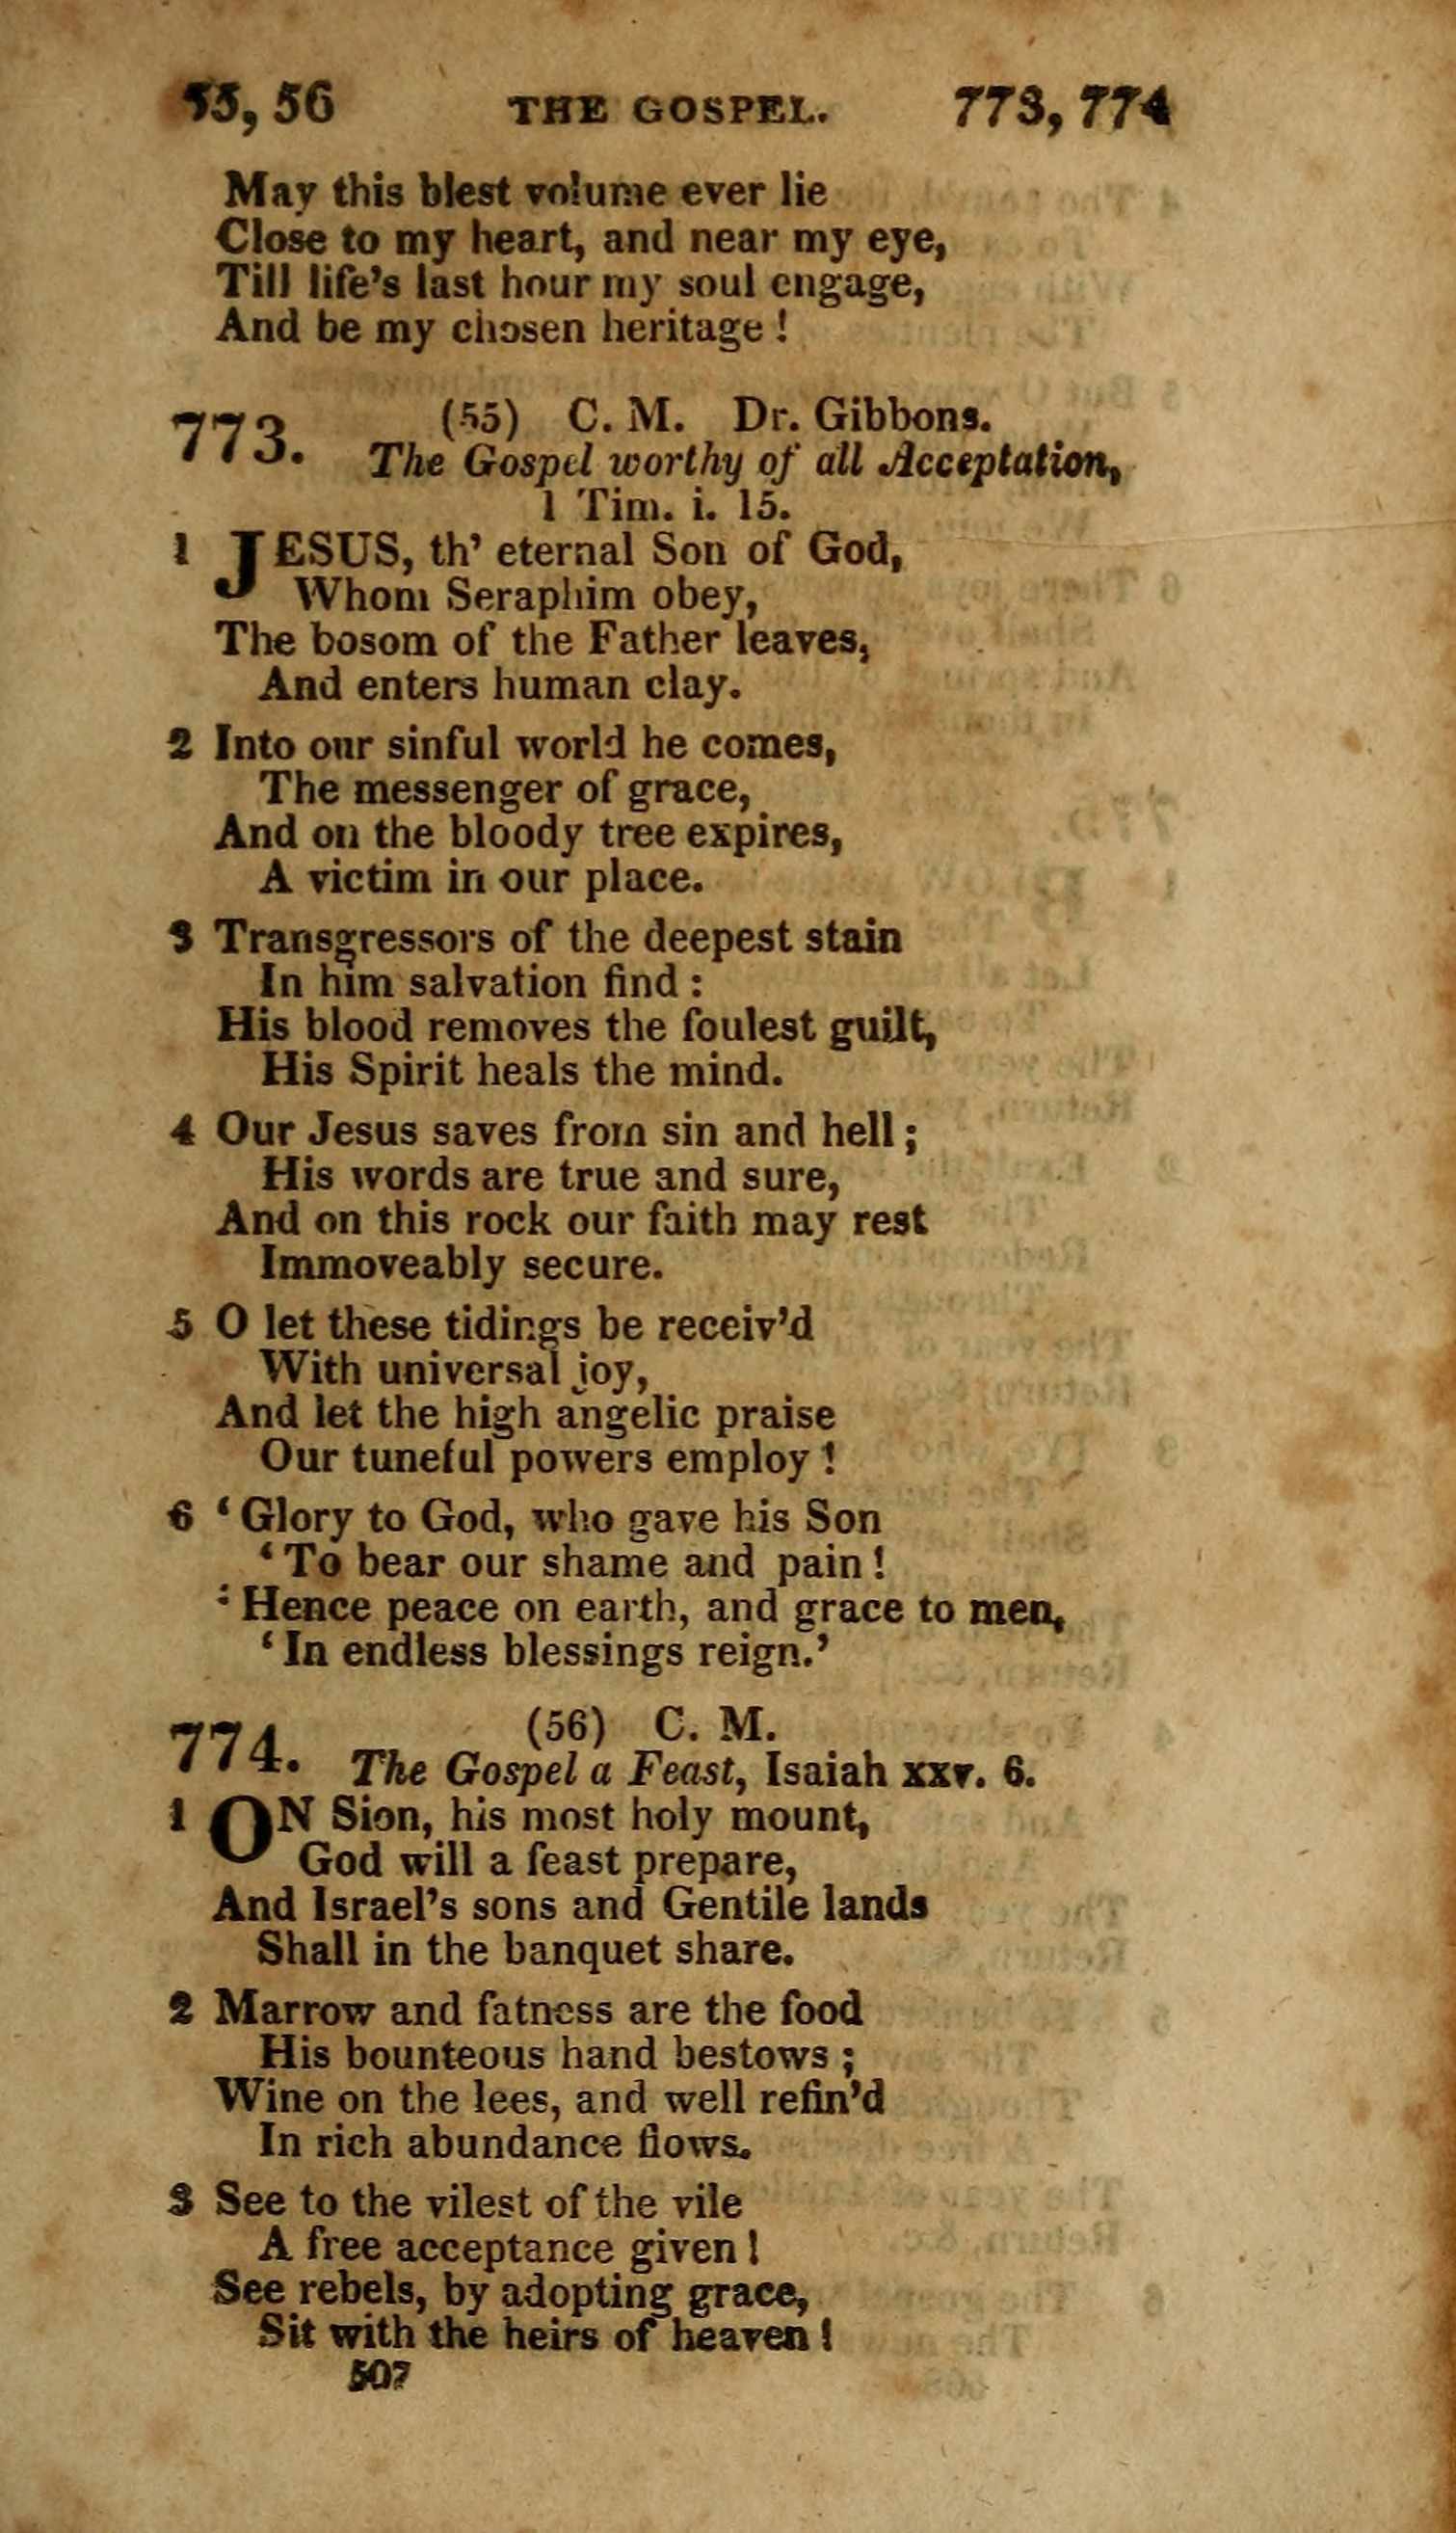 55, 56 THE GOSPEL. 773, 774
May this blest volume ever lie
Close to my heart, and near my eye,
Till life's last hour my soul engage,
And be my chosen heritage !
773. (55) C. M. Dr. Gibbons.
The Gospel worthy of all Acceptation,
1 Tim. i. 15.
1 JESUS, th' eternal Son of God,
Whom Seraphim obey,
The bosom of the Father leaves,
And enters human clay.
2 Into our sinful world he comes,
The messenger of grace,
And on the bloody tree expires,
A victim in our place.
3 Transgressors of the deepest stain
In him salvation find :
His blood removes the foulest guilt,
His Spirit heals the mind.
4 Our Jesus saves from sin and hell ;
His words are true and sure,
And on this rock our faith may rest
Immoveably secure.
5 O let these tidings be receiv'd
With universal joy,
And let the high angelic praise
Our tuneful powers employ !
6 ‘ Glory to God, who gave his Son
‘ To bear our shame and pain !
‘ Hence peace on earth, and grace to men,
‘ In endless blessings reign.’
774. (56) C. M.
The Gospel a Feast, Isaiah xxv. 6.
1 ON Sion, his most holy mount,
God will a feast prepare,
And Israel's sons and Gentile lands
Shall in the banquet share.
2 Marrow and fatness are the food
His bounteous hand bestows ;
Wine on the lees, and well refin'd
In rich abundance flows.
3 See to the vilest of the vile
A free acceptance given !
See rebels, by adopting grace,
Sit with the heirs of heaven !
507